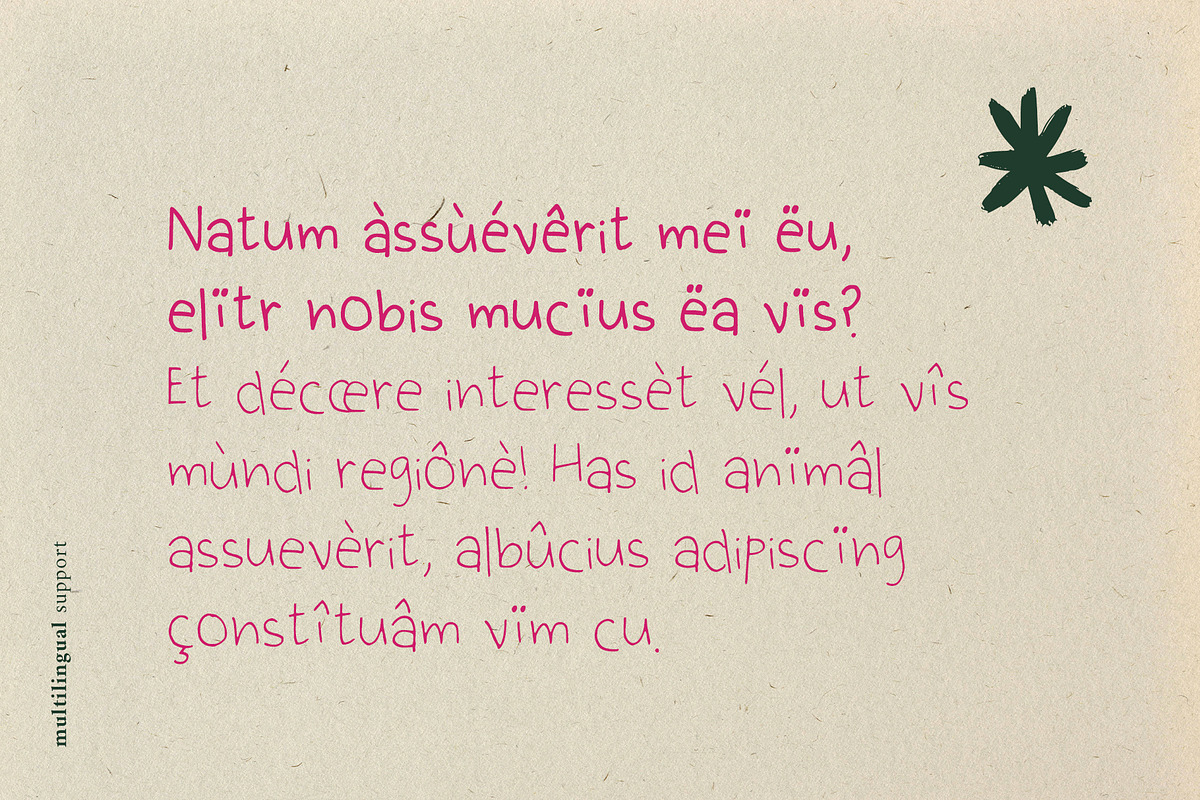 Natum àssùévêrit meï ëu,
elïtr nobis mucïus ëa vïs?
Et déccœre interessèt vél, ut vîs
mùndi regiônè! Has id anïmâl
assuevèrit, albûcius adipiscïng
çonstîtuâm vïm cu.
multilingual support